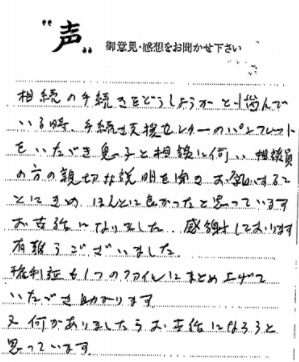 "声" 御意見・感想をお聞かせ下さい
相続の手続きをどうしようかと悩んで
いる時、手続き支援センターのパンフレット
をいただき息子と相談に伺い、相談員
の方の親切な説明を聞きお願いするこ
とにきめ、ほんとに良かったと思っています
お世話になりました。感謝しております
有難うございました。
権利証も1つのファイルにまとめ上げて
いただき助かります。
又何かありましたらお世話になろうと
思っています。